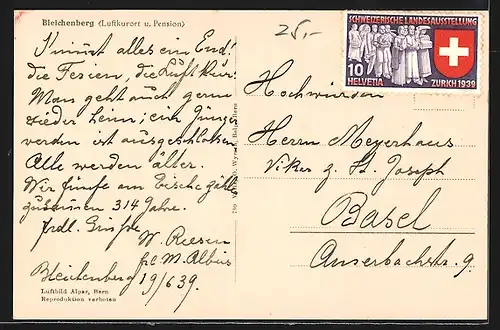 Bleichenberg (Luftkurort u. Pension)
25.-
S'nimmt alles ein End!
die Ferien, die Luftkur.
Man geht auch gern
wieder heim; ein Jung
werden ist ausgeschlossen
Alle werden älter.
Wir fünfe am Tische zähl
zusammen 314 Jahre.
frdl. Grüsse
W. Reesen
frl. M. Albus
Bleichenberg 19/6 39.
Luftbild Alpar, Bern
Reproduktion verboten
SCHWEIZERISCHE LANDESAUSSTELLUNG
10
HELVETIA
ZÜRICH 1939
Hochwürden
Herrn Meyerhaus
Vikar z. St. Joseph
Basel
Amerbachstr. 9